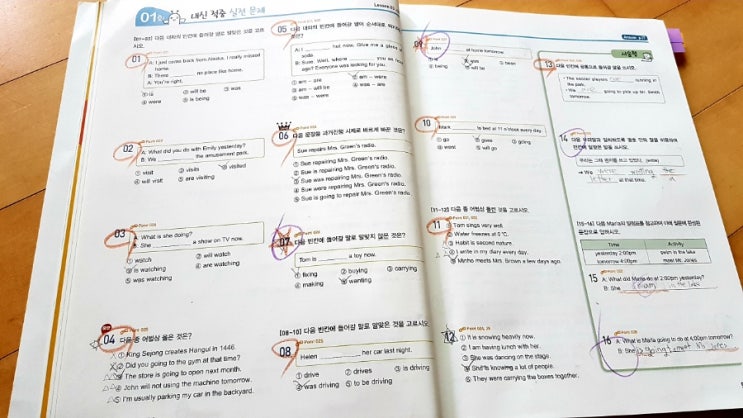 01회 내신 적중 실전 문제
[01~02] 다음 대화의 빈칸에 들어갈 말로 알맞은 것을 고르시오.
01
A: I just came back from Alaska. I really missed
home.
B: There ______ no place like home.
A: You're right.
① is ② will be ③ was
④ were ⑤ is being
02
A: What did you do with Emily yesterday?
B: We ______ the amusement park.
① visit ② visits ③ visited
④ will visit ⑤ are visiting
03
A: What is she doing?
B: She ______ a show on TV now.
① watch ② will watch
③ is watching ④ are watching
⑤ was watching
04 다음 중 어법상 옳은 것은?
① King Sejong creates Hangul in 1446.
② Did you going to the gym at that time?
③ The store is going to open next month.
④ John will not using the machine tomorrow.
⑤ I'm usually parking my car in the backyard.
05 다음 대화의 빈칸에 들어갈 말이 순서대로
A: I ______ her now. Give me a glass of
soda.
B: Sure. Wait, where ______ you an hour
ago? Everyone was looking for you.
① am – are ② am – were
③ am – will be ④ was – are
⑤ was – were
06 다음 문장을 과거진행 시제로 바르게 바꾼 것은?
Sue repairs Mrs. Green's radio.
① Sue repairing Mrs. Green's radio.
② Sue is repairing Mrs. Green's radio.
③ Sue was repairing Mrs. Green's radio.
④ Sue were repairing Mrs. Green's radio.
⑤ Sue is going to repair Mrs. Green's radio.
07 다음 빈칸에 들어갈 말로 알맞지 않은 것은?
Tom is ______ a toy now.
① fixing ② buying ③ carrying
④ making ⑤ wanting
[08~10] 다음 빈칸에 들어갈 말로 알맞은 것을 고르시오.
08
Helen ______ her car last night.
① drive ② drives ③ is driving
④ was driving ⑤ to be driving
09
John ______ at home tomorrow.
① is ② was ③ been
④ being ⑤ will be
10
Mark ______ to bed at 11 o'clock every day.
① go ② goes ③ going
④ went ⑤ will go
[11~12] 다음 중 어법상 틀린 것을 고르시오.
11
① Tom sings very well.
② Water freezes at 0 ℃.
③ Habit is second nature.
④ I write in my diary every day.
⑤ Minho meets Mrs. Brown a few days ago.
12
① It is snowing heavily now.
② I am having lunch with her.
③ She was dancing on the stage.
④ She is knowing a lot of people.
⑤ They were carrying the boxes together.
서술형
13 다음 빈칸에 공통으로 들어갈 말을 쓰시오.
• The soccer players are running in
the park.
• We are going to pick up Mr. Smith
tomorrow.
14
우리는 그때 편지를 쓰고 있었다. (write)
→ We were writing the
letter at that time.
[15~16] 다음 Maria의 일정표를 참고하여
Time Activity
yesterday 2:00pm swim in the lake
tomorrow 4:00pm meet Mr. Jones
15
A: What did Maria do at 2:00pm yesterday?
B: She swam in the lake
16
A: What is Maria going to do at 4:00pm tomorrow?
B: She is going to meet Mr. Jones